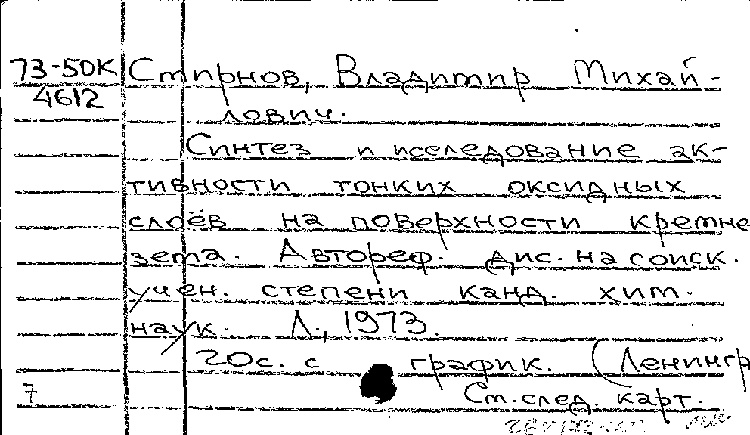 73-50К Смирнов, Владимир Михай-
4612
лович.
Синтез и исследование ак-
тивности тонких оксидных
слоёв на поверхности кремне
зема. Автореф. дис. на соиск.
учен. степени канд. хим.
наук. Л., 1973.
20с. с график. (Ленингр
7 См. след. карт.